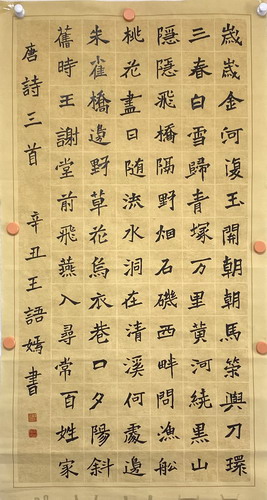 歲歲金河復玉開朝朝馬策與刀環
三春白雪歸青塚万里黃河繞黑山
隱隱飛橋隔野烟石磯西畔問漁舩
桃花盡日随流水洞在清溪何處邊
朱雀橋邊野草花烏衣巷口夕陽斜
舊時王謝堂前飛燕入尋常百姓家
唐詩三首 辛丑王語嫣書